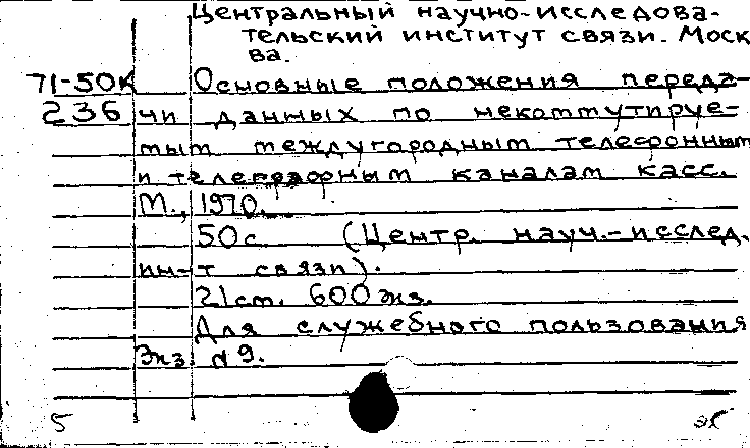 Центральный научно-исследова-
тельский институт связи. Моск
ва.
71-50К Основные положения переда-
236 чи данных по некоммутируе-
мым междугородным телефонным
и телеграфным каналам касс.
М., 1970.
50 с. (Центр. науч.-исслед.
ин-т связи).
21 см. 600 экз.
Для служебного пользования
Экз. N 9.
5